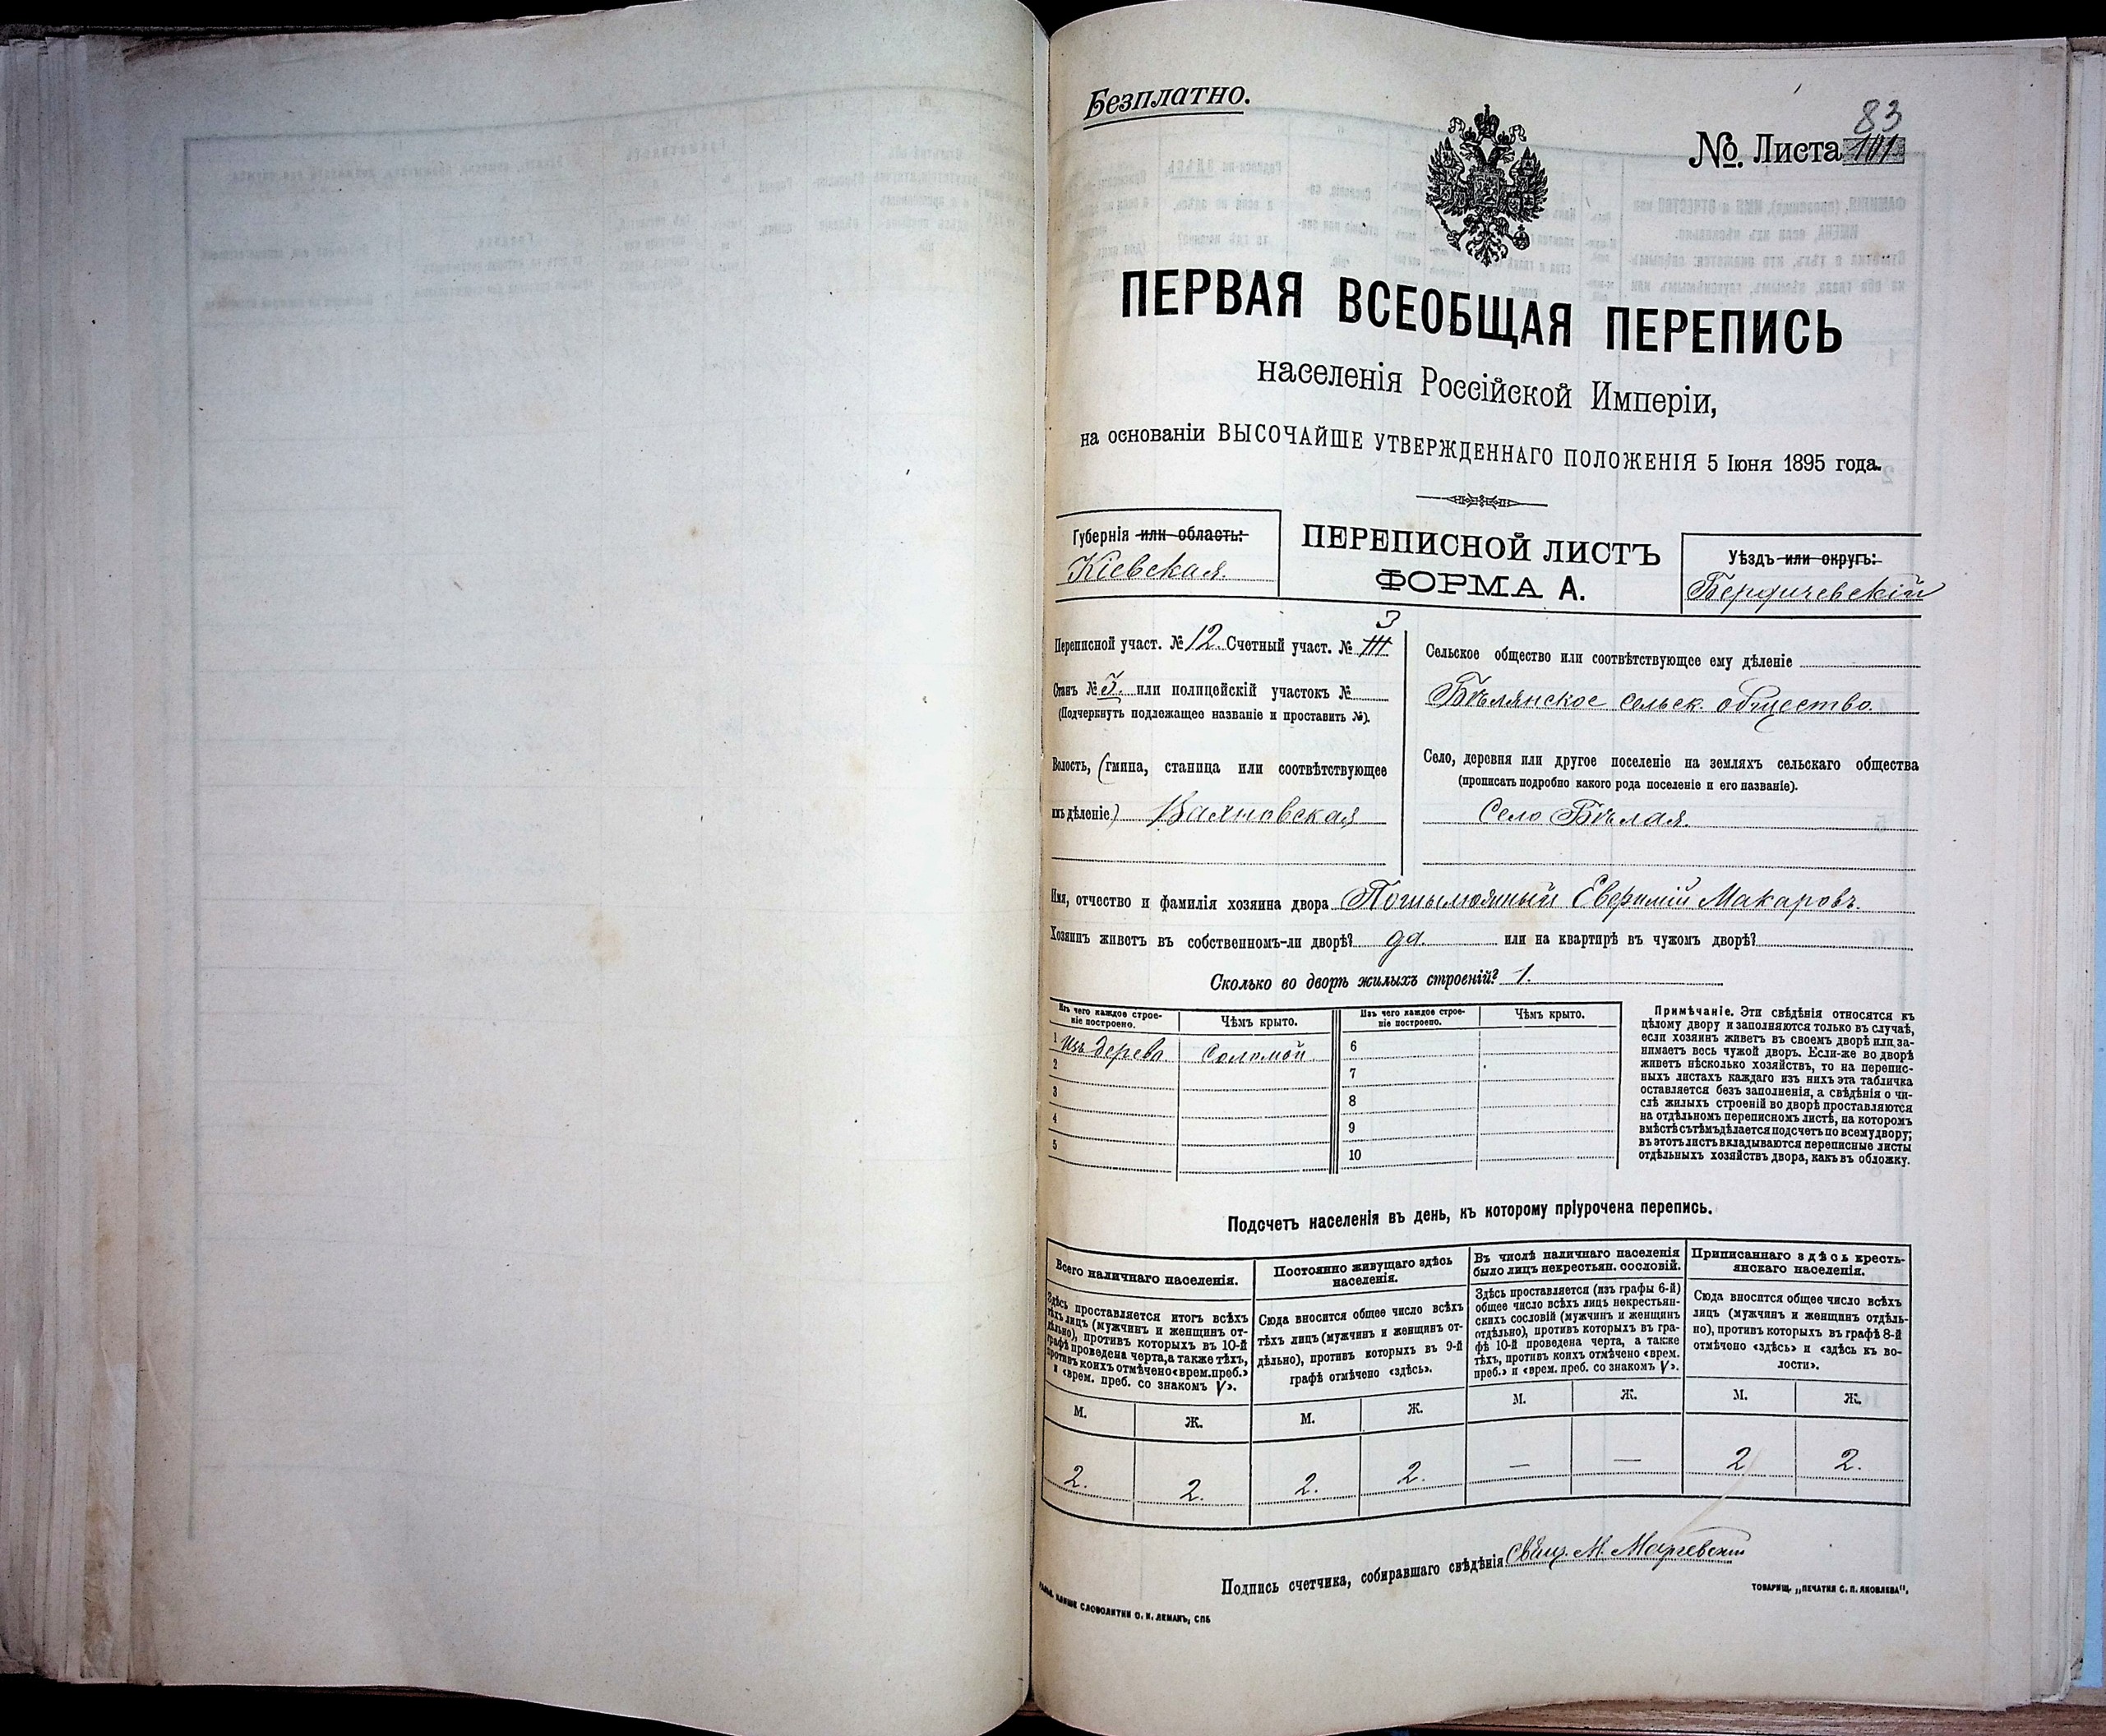 Безплатно.
83
№. Листа 101
ПЕРВАЯ ВСЕОБЩАЯ ПЕРЕПИСЬ
населенія Россійской Имперіи,
на основаніи ВЫСОЧАЙШЕ УТВЕРЖДЕННАГО ПОЛОЖЕНІЯ 5 Іюня 1895 года.
Губернія или область:
Кіевская.
ПЕРЕПИСНОЙ ЛИСТЪ
ФОРМА А.
Уѣздъ или округъ:
Бердичевскій
Переписной участ. № 12. Счетный участ. № III 3
Станъ № 3. или полицейскій участокъ №
(Подчеркнуть подлежащее названіе и проставить №).
Волость, (гмина, станица или соотвѣтствующее
имъ дѣленіе) Вахновская
Сельское общество или соотвѣтствующее ему дѣленіе
Бѣлянское сельск. общество.
Село, деревня или другое поселеніе на земляхъ сельскаго общества
(прописать подробно какого рода поселеніе и его названіе).
Село Бѣлая.
Имя, отчество и фамилія хозяина двора Евфимій Макаровъ.
Хозяинъ живетъ въ собственномъ-ли дворѣ? да. или на квартирѣ въ чужомъ дворѣ?
Сколько во дворѣ жилыхъ строеній? 1.
Изъ чего каждое строе-
ніе построено.
Чѣмъ крыто.
1 Изъ дерева Соломой.
2
3
4
5
Изъ чего каждое строе-
ніе построено.
Чѣмъ крыто.
6
7
8
9
10
Примѣчаніе. Эти свѣдѣнія относятся къ
цѣлому двору и заполняются только въ случаѣ,
если хозяинъ живетъ въ своемъ дворѣ или за-
нимаетъ весь чужой дворъ. Если-же во дворѣ
живетъ нѣсколько хозяйствъ, то на перепис-
ныхъ листахъ каждаго изъ нихъ эта табличка
оставляется безъ заполненія, а свѣдѣнія о чи-
слѣ жилыхъ строеній во дворѣ проставляются
на отдѣльномъ переписномъ листѣ, на которомъ
вмѣстѣ съ тѣмъ дѣлается подсчетъ по всему двору;
въ этотъ листъ вкладываются переписные листы
отдѣльныхъ хозяйствъ двора, какъ въ обложку.
Подсчетъ населенія въ день, къ которому пріурочена перепись.
Всего наличнаго населенія.
Здѣсь проставляется итогъ всѣхъ
тѣхъ лицъ (мужчинъ и женщинъ от-
дѣльно), противъ которыхъ въ 10-й
графѣ проведена черта, а также тѣхъ,
противъ коихъ отмѣчено «врем. преб.»
и «врем. преб. со знакомъ V».
М. Ж.
2. 2.
Постоянно живущаго здѣсь
населенія.
Сюда вносится общее число всѣхъ
тѣхъ лицъ (мужчинъ и женщинъ от-
дѣльно), противъ которыхъ въ 9-й
графѣ отмѣчено «здѣсь».
М. Ж.
2. 2.
Въ числѣ наличнаго населенія
было лицъ некрестьян. сословій.
Здѣсь проставляется (изъ графы 6-й)
общее число всѣхъ лицъ некрестьян-
скихъ сословій (мужчинъ и женщинъ
отдѣльно), противъ которыхъ въ гра-
фѣ 10-й проведена черта, а также
тѣхъ, противъ коихъ отмѣчено «врем.
преб.» и «врем. преб. со знакомъ V».
М. Ж.
— —
Приписаннаго здѣсь кресть-
янскаго населенія.
Сюда вносится общее число всѣхъ
лицъ (мужчинъ и женщинъ отдѣль-
но), противъ которыхъ въ графѣ 8-й
отмѣчено «здѣсь» и «здѣсь къ во-
лости».
М. Ж.
2 2.
Подпись счетчика, собиравшаго свѣдѣнія Свящ. М.
СЛОВОЛИТНИ О. И. ЛЕМАНЪ, СПБ
ТОВАРИЩ. „ПЕЧАТНЯ С. П. ЯКОВЛЕВА".